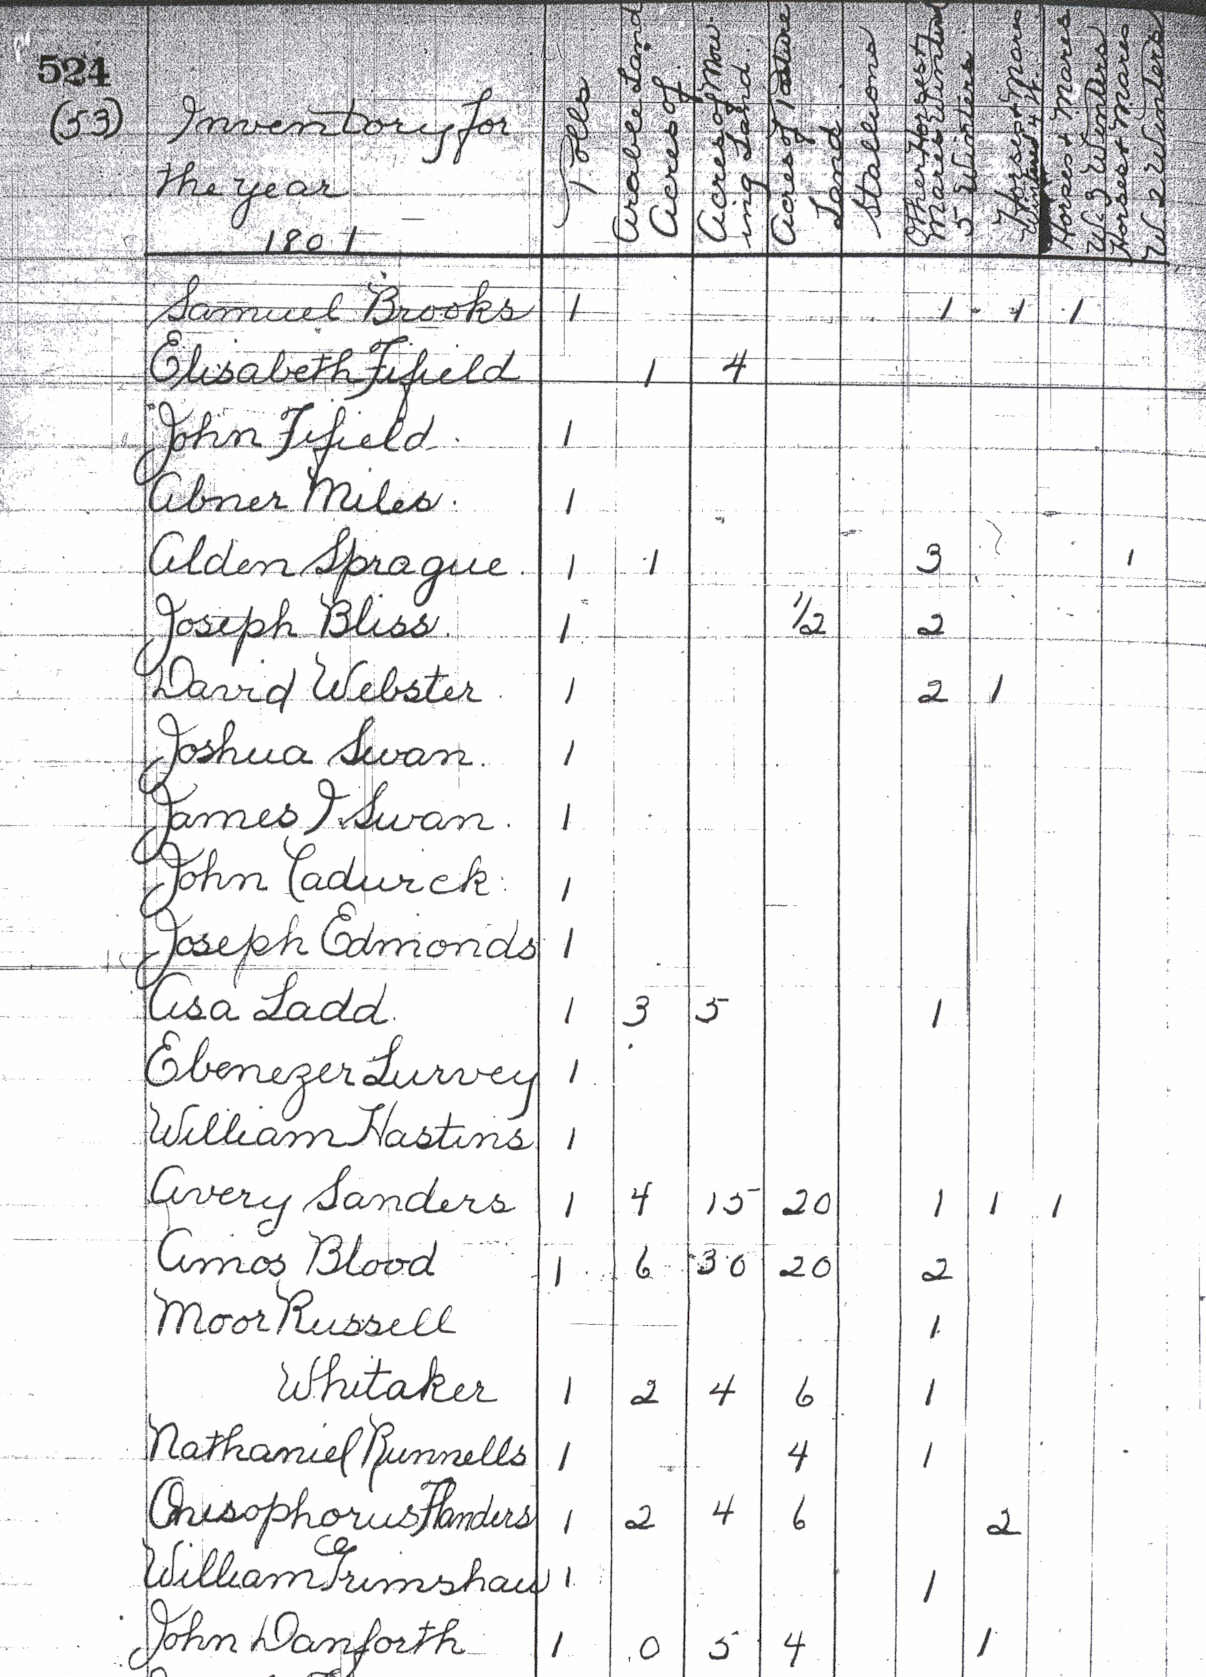 524
(53)
Inventory for
the year
1801
Polls
Arable Land Acres of
Acres of Mow-
ing Land.
Acres of Pasture
Land.
Stallions
Other Horses +
Mares Wintered
5 Winters
Horses + Mares
Wintered 4 W.
Horses + Mares
W. 3 Winters
Horses + Mares
W. 2 Winters
Samuel Brooks 1 1 1 1
Elisabeth Fifield 1 4
John Fifield. 1
Abner Miles. 1
Alden Sprague. 1 1 3 1
Joseph Bliss. 1 1/2 2
David Webster 1 2 1
Joshua Swan. 1
James I. Swan. 1
John Cadurck. 1
Joseph Edmonds 1
Asa Ladd. 1 3 5 1
Ebenezer Lurvey 1
William Hastins 1
Avery Sanders 1 4 15 20 1 1 1
Amos Blood 1 6 30 20 2
Moor Russell 1
Whitaker 1 2 4 6 1
Nathaniel Runnells 1 4 1
Onesophorus Flanders 1 2 4 6 2
William Grimshaw 1 1
John Danforth 1 0 5 4 1